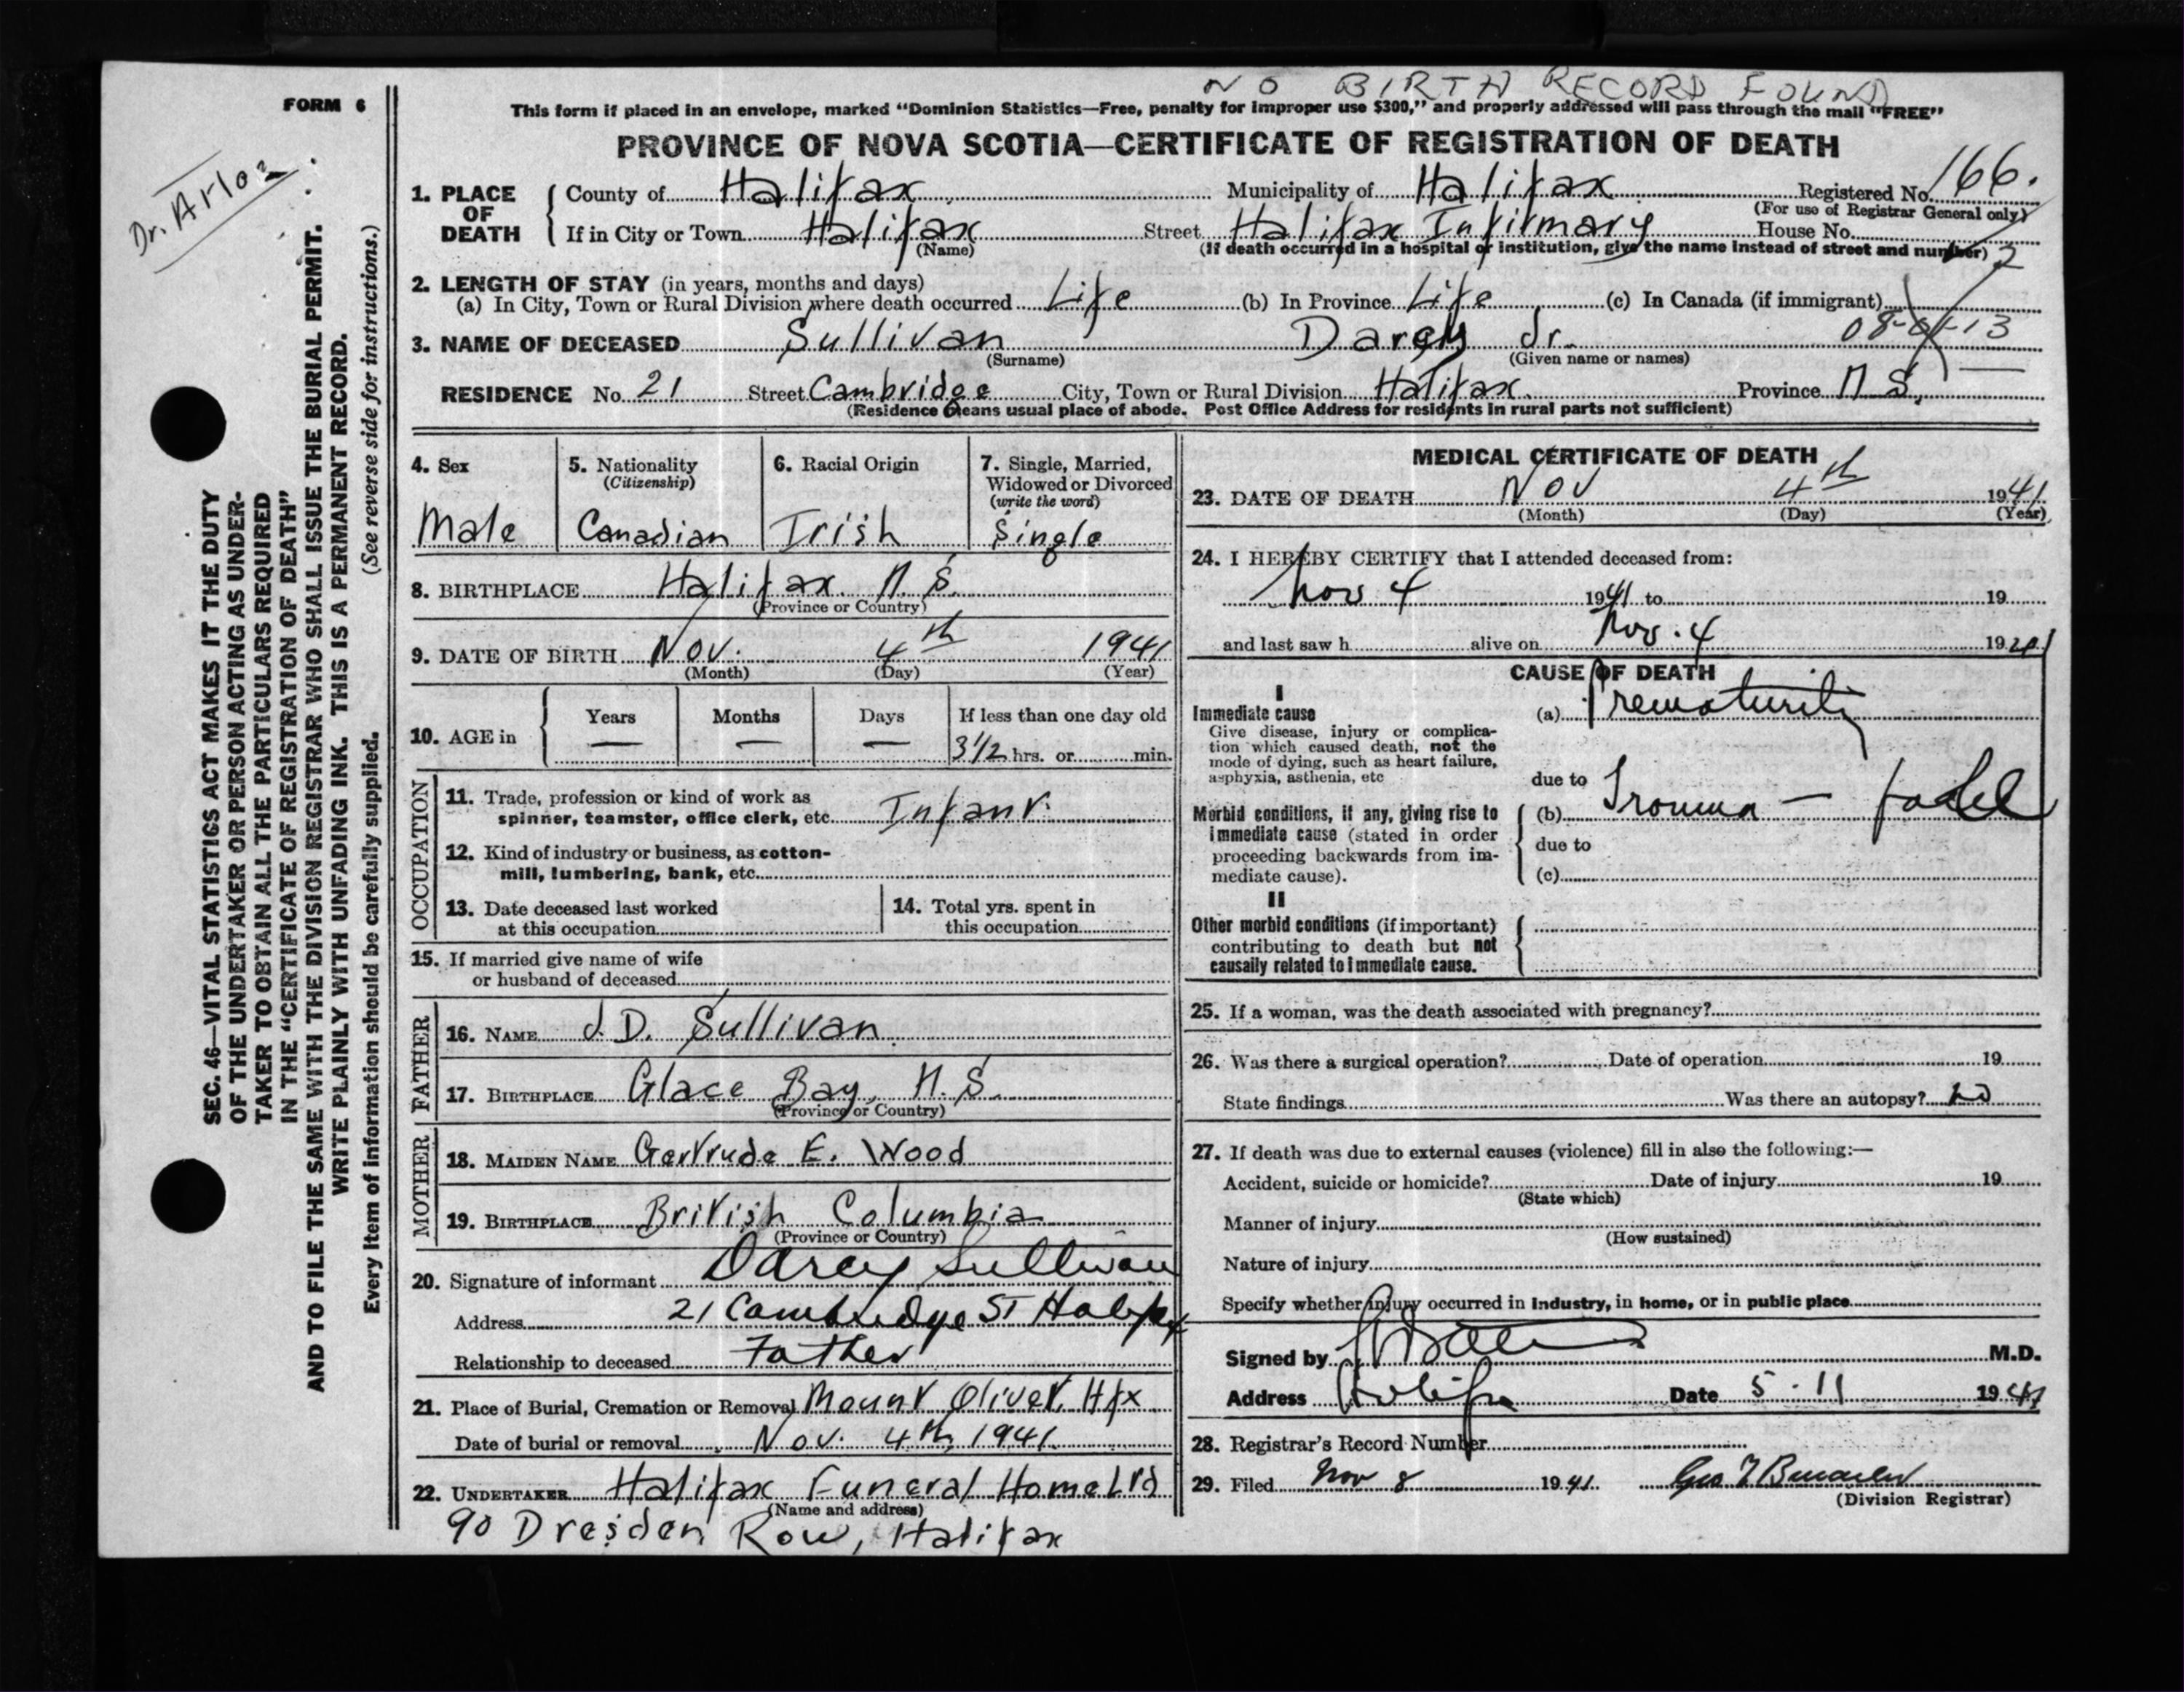 NO BIRTH RECORD FOUND
FORM 6
This form if placed in an envelope, marked "Dominion Statistics—Free, penalty for improper use $300," and properly addressed will pass through the mail "FREE"
PROVINCE OF NOVA SCOTIA—CERTIFICATE OF REGISTRATION OF DEATH
SEC. 46—VITAL STATISTICS ACT MAKES IT THE DUTY
OF THE UNDERTAKER OR PERSON ACTING AS UNDER-
TAKER TO OBTAIN ALL THE PARTICULARS REQUIRED
IN THE "CERTIFICATE OF REGISTRATION OF DEATH"
AND TO FILE THE SAME WITH THE DIVISION REGISTRAR WHO SHALL ISSUE THE BURIAL PERMIT.
WRITE PLAINLY WITH UNFADING INK. THIS IS A PERMANENT RECORD.
Every item of information should be carefully supplied. (See reverse side for instructions.)
Dr.
1. PLACE OF DEATH
County of Halifax Municipality of Halifax Registered No. 166.
(For use of Registrar General only)
If in City or Town Halifax Street Halifax Infirmary House No.
(Name) (If death occurred in a hospital or institution, give the name instead of street and number)
2. LENGTH OF STAY (in years, months and days)
(a) In City, Town or Rural Division where death occurred Life (b) In Province Life (c) In Canada (if immigrant)
3. NAME OF DECEASED Sullivan Darcy Jr.
(Surname) (Given name or names)
RESIDENCE No. 21 Street Cambridge City, Town or Rural Division Halifax. Province N.S.
(Residence means usual place of abode. Post Office Address for residents in rural parts not sufficient)
4. Sex
Male
5. Nationality
(Citizenship)
Canadian
6. Racial Origin
Irish
7. Single, Married,
Widowed or Divorced
(write the word)
Single
8. BIRTHPLACE Halifax N.S.
(Province or Country)
9. DATE OF BIRTH Nov. 4th 1941
(Month) (Day) (Year)
10. AGE in
Years Months Days If less than one day old
— — — 3 1/2 hrs. or min.
OCCUPATION
11. Trade, profession or kind of work as
spinner, teamster, office clerk, etc. Infant.
12. Kind of industry or business, as cotton-
mill, lumbering, bank, etc.
13. Date deceased last worked
at this occupation
14. Total yrs. spent in
this occupation
15. If married give name of wife
or husband of deceased
FATHER
16. NAME J. D. Sullivan
17. BIRTHPLACE Glace Bay, N.S.
(Province or Country)
MOTHER
18. MAIDEN NAME Gertrude E. Wood
19. BIRTHPLACE British Columbia
(Province or Country)
20. Signature of informant Darcy Sullivan
Address 21 Cambridge St Halifax
Relationship to deceased Father
21. Place of Burial, Cremation or Removal Mount Olivet, Hfx
Date of burial or removal Nov. 4th, 1941.
22. UNDERTAKER Halifax Funeral Home Ltd
(Name and address)
90 Dresden Row, Halifax
MEDICAL CERTIFICATE OF DEATH
23. DATE OF DEATH Nov 4th 1941
(Month) (Day) (Year)
24. I HEREBY CERTIFY that I attended deceased from:
Nov 4 1941 to 19
and last saw h alive on Nov. 4 1941
CAUSE OF DEATH
I
Immediate cause
Give disease, injury or complica-
tion which caused death, not the
mode of dying, such as heart failure,
asphyxia, asthenia, etc
(a) Prematurity
due to
Morbid conditions, if any, giving rise to
immediate cause (stated in order
proceeding backwards from im-
mediate cause).
(b) Trauma —
due to
(c)
II
Other morbid conditions (if important)
contributing to death but not
causally related to immediate cause.
25. If a woman, was the death associated with pregnancy?
26. Was there a surgical operation? Date of operation 19
State findings Was there an autopsy? No
27. If death was due to external causes (violence) fill in also the following:—
Accident, suicide or homicide? Date of injury 19
(State which)
Manner of injury
(How sustained)
Nature of injury
Specify whether injury occurred in industry, in home, or in public place
Signed by M.D.
Address Halifax Date 5-11 1941
28. Registrar's Record Number
29. Filed Nov 8 1941.
(Division Registrar)